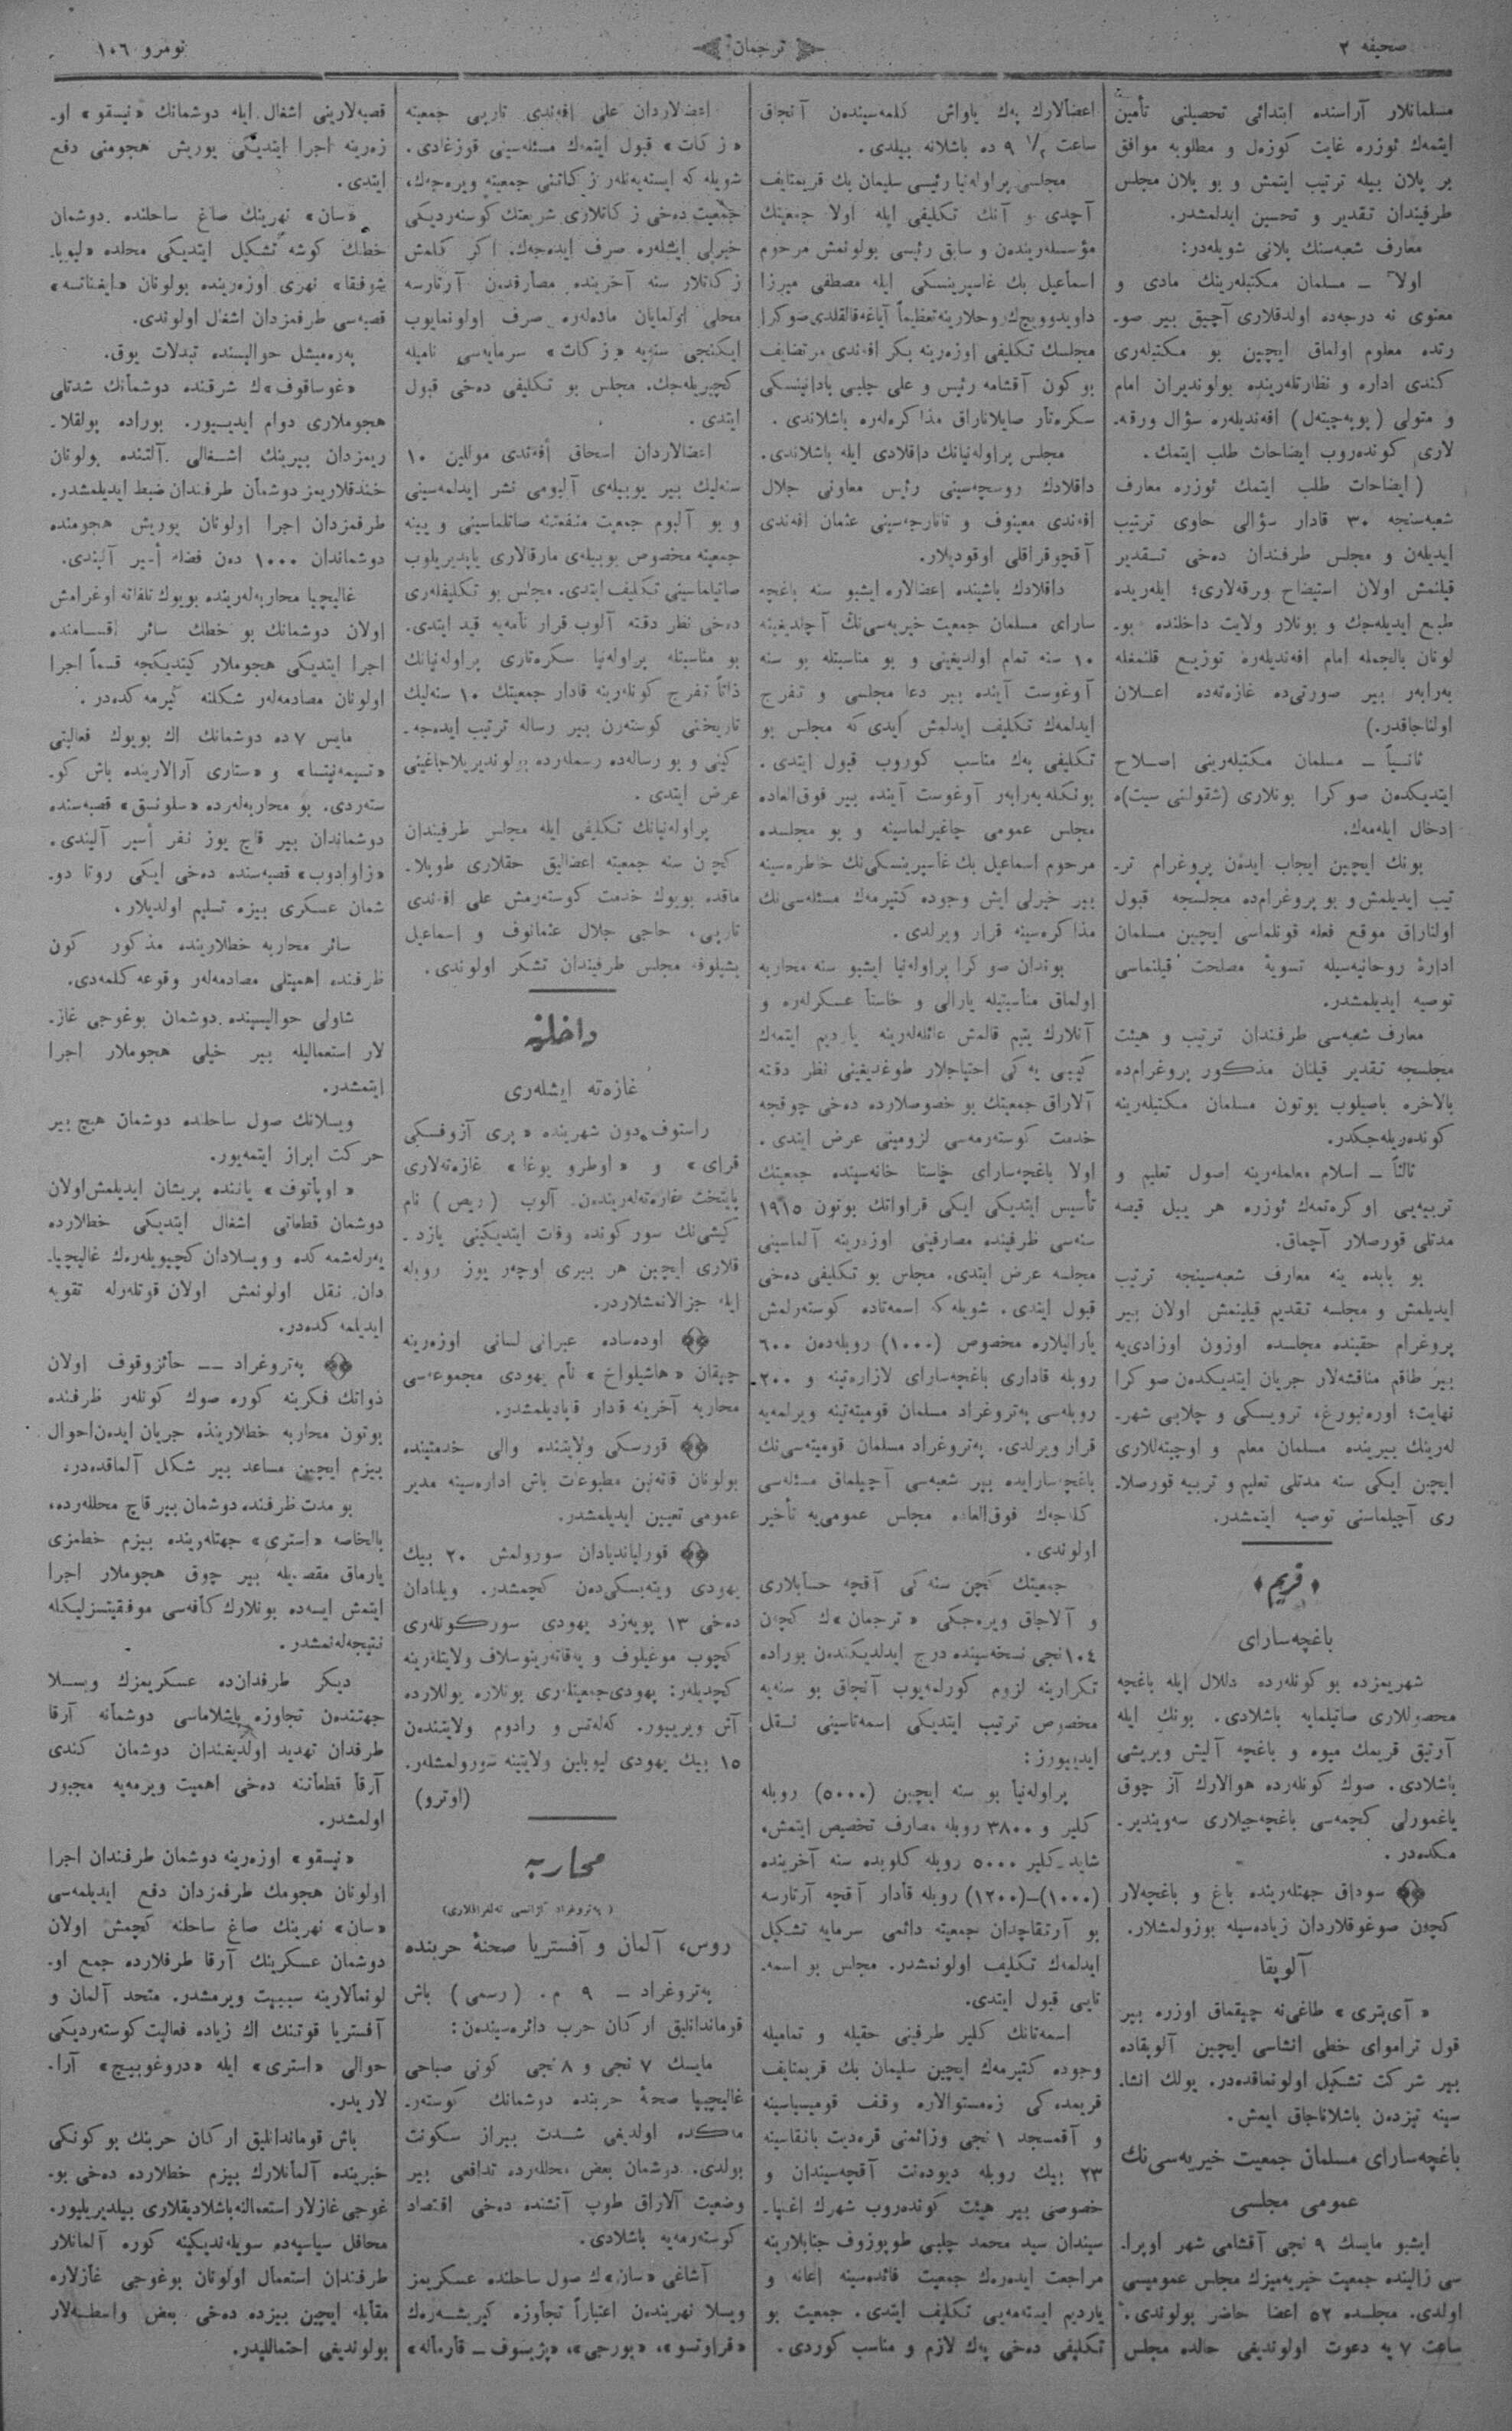 صحیفه ٢
ترجمان
نومرو ١٠٦
مسلمانلار آراسنده ابتدائی تحصیلنی تأمین
ایتمەك ئوزره غایت كوزەل و مطلوبه موافق
بر پلان بیله ترتیب ایتمش و بو پلان مجلس
طرفیندان تقدیر و تحسین ایدلمشدر.
معارف شعبەسنك پلانی شویلەدر:
اولاً ــ مسلمان مكتبلەرینك مادی و
معنوی نه درجەده اولدقلاری آچیق بیر صو-
رتده معلوم اولماق ایچین بو مكتبلەری
كندی اداره و نظارتلەرینده بولوندیران امام
و متولی (پوپەچیتەل) افەندیلەره سؤال ورقه-
لاری كوندەروب ایضاحات طلب ایتمك.
( ایضاحات طلب ایتمك ئوزره معارف
شعبەسنجه ٣٠ قادار سؤالی حاوی ترتیب
ایدیلەن و مجلس طرفندان دەخی تقدیر
قیلنمش اولان استیضاح ورقەلاری؛ ایلەریده
طبع ایدیلەجك و بونلار ولایت داخلنده بو-
لونان بالجمله امام افەندیلەره توزیع قلنمغله
بەرابەر بیر صورتی‌ده غازەتەده اعلان
اولناجاقدر.)
ثانیاً ــ مسلمان مكتبلەرینی اصلاح
ایتدیكدەن صوكرا بونلاری (شقولنی سیت)ه
إدخال ایلەمەك.
بونك ایچین ایجاب ایدەن پروغرام تر-
تیب ایدیلمش و بو پروغرام‌ده مجلسجه قبول
اولناراق موقع فعله قونلماسی ایچین مسلمان
ادارۀ روحانیه‌سیله تسویۀ مصلحت قیلنماسی
توصیه ایدیلمشدر.
معارف شعبەسی طرفندان ترتیب و هیئت
مجلسجه تقدیر قیلنان مذكور پروغرام‌ده
بالآخره باصیلوب بوتون مسلمان مكتبلەرینه
كوندەریلەجكدر.
ثالثاً ــ اسلام معلملەرینه اصول تعلیم و
تربیەیی اوكرەتمەك ئوزره هر ییل قیصه
مدتلی قورصلار آچماق.
بو بابده ینه معارف شعبەسینجه ترتیب
ایدیلمش و مجلسه تقدیم قیلینمش اولان بیر
پروغرام حقینده مجلسده اوزون اوزادی‌یه
بیر طاقم مناقشه‌لار جریان ایتدیكدەن صوكرا
نهایت؛ اورەنبورغ، ترویسكی و چلابی شهر-
لەرینك بیرینده مسلمان معلم و اوچیتەللاری
ایچین ایكی سنه مدتلی تعلیم و تربیه قورصلا-
ری آچیلماسنی توصیه ایتمشدر.
قریم
باغچەسارای
شهریمزده بو كونلەرده دللال ایله باغچه
محصوللاری صاتیلمایه باشلادی. بونك ایله
آرتیق قریمك میوه و باغچه آلیش ویریشی
باشلادی. صوك كونلەرده هوالارك آز چوق
یاغمورلی كچمەسی باغچەجیلاری سەویندیر-
مكدەدر.
سوداق جهتلەرینده باغ و باغچەلار
كچەن صوغوقلاردان زیادەسیله بوزولمشلار.
آلوپقا
« آی‌پتری » طاغی‌نه چیقماق اوزره بیر
قول تراموای خطی انشاسی ایچین آلوپقاده
بیر شركت تشكیل اولونماقدەدر. یولك انشا-
سینه تیزدەن باشلاناجاق ایمش.
باغچەسارای مسلمان جمعیت خیریەسی‌نك
عمومی مجلسی
ایشبو مایسك ٩ نجی آقشامی شهر اوپرا-
سی زالینده جمعیت خیریەمیزك مجلس عمومیسی
اولدی. مجلسده ٥٢ اعضا حاضر بولوندی.
ساعت ٧ یه دعوت اولوندیغی حالده مجلس
اعضالارك پەك یاواش كلمەسیندەن آنجاق
ساعت ٩ ١/٢ ده باشلانه بیلدی.
مجلسی پراولەنیا رئیسی سلیمان بك قریمتایف
آچدی و آنك تكلیفی ایله اولا جمعیتك
مؤسسلەریندەن و سابق رئیسی بولونمش مرحوم
اسماعیل بك غاسپرینسكی ایله مصطفی میرزا
داویدوویچ‌ك روحلارینه تعظیماً آیاغه قالقلدی صوكرا
مجلسك تكلیفی اوزەرینه بكر افەندی مرتضایف
بو كون آقشامه رئیس و علی چلبی بادانینسكی
سكرەتار صایلاناراق مذاكرەلەره باشلاندی.
مجلس پراولەنیانك داقلادی ایله باشلاندی.
داقلادك روسچەسینی رئیس معاونی جلال
افەندی معینوف و تاتارجەسینی عثمان افەندی
آقچوقراقلی اوقودیلار.
داقلادك باشینده اعضالاره ایشبو سنه باغچه
سارای مسلمان جمعیت خیریەسی‌نك آچلدیغینه
١٠ سنه تمام اولدیغینی و بو مناسبتله بو سنه
آوغوست آینده بیر دعا مجلسی و تفرج
ایدلمەك تكلیف ایدلمش ایدی كه مجلس بو
تكلیفی پەك مناسب كوروب قبول ایتدی.
بونكله بەرابەر آوغوست آینده بیر فوق‌العاده
مجلس عمومی چاغیرلماسینه و بو مجلسده
مرحوم اسماعیل بك غاسپرینسكی‌نك خاطرەسینه
بیر خیرلی ایش وجوده كتیرمەك مسئلەسی‌نك
مذاكرەسینه قرار ویرلدی.
بوندان صوكرا پراولەنیا ایشبو سنه محاربه
اولماق مناسبتیله یارالی و خاستا عسكرلەره و
آنلارك یتیم قالمش عائلەلەرینه یاردیم ایتمەك
كیبی یەكی احتیاجلار طوغدیغینی نظر دقته
آلاراق جمعیتك بو خصوصلارده دەخی چوقچه
خدمت كوستەرمەسی لزومینی عرض ایتدی.
اولا باغچەسارای خاستا خانەسینده جمعیتك
تأسیس ایتدیكی ایكی قراواتك بوتون ١٩١٥
سنەسی ظرفینده مصارفینی اوزەرینه آلماسینی
مجلسه عرض ایتدی. مجلس بو تكلیفی دەخی
قبول ایتدی. شویلەكه اسمەتاده كوستەرلمش
یارالیلاره مخصوص (١٠٠٠) روبلەدەن ٦٠٠
روبله قاداری باغچەسارای لازارەتینه و ٢٠٠-
روبلەسی پەتروغراد مسلمان قومیتەتینه ویرلمەیه
قرار ویرلدی. پەتروغراد مسلمان قومیتەسی‌نك
باغچەسارایده بیر شعبەسی آچیلماق مسئلەسی
كلەجەك فوق‌العاده مجلس عمومی‌یه تأخیر
اولوندی.
جمعیتك كچن سنەكی آقچه حسابلاری
و آلاجاق ویرەجكی « ترجمان »ك كچەن
١٠٤نجی نسخەسینده درج ایدلدیكندەن بوراده
تكرارینه لزوم كورلمەیوب آنجاق بو سنەیه
مخصوص ترتیب ایتدیكی اسمەتاسینی نقل
ایدیبورز:
پراولەنیا بو سنه ایچین (٥٠٠٠) روبله
كلیر و ٣٨٠٠ روبله مصارف تخصیص ایتمش،
شاید كلیر ٥٠٠٠ روبله كلوبده سنه آخرینده
(١٠٠٠)ــ(١٢٠٠) روبله قادار آقچه آرتارسه
بو آرتقاچدان جمعیته دائمی سرمایه تشكیل
ایدلمەك تكلیف اولونمشدر. مجلس بو اسمه-
تایی قبول ایتدی.
اسمەتانك كلیر طرفینی حقیله و تمامیله
وجوده كتیرمەك ایچین سلیمان بك قریمتایف
قریمدەكی زەمستوالاره وقف قومیسیاسینه
و آقمسجد ١نجی وزائمنی قرەدیت بانقاسینه
٢٣ بیك روبله دیودەنت آقچەسیندان و
خصوصی بیر هیئت كوندەروب شهرك اغنیا-
سیندان سید محمد چلبی طوپوزوف جنابلارینه
مراجعت ایدەرەك جمعیت فائدەسینه إعانه و
یاردیم ایستەمەیی تكلیف ایتدی. جمعیت بو
تكلیفی دەخی پەك لازم و مناسب كوردی.
اعضالاردان علی افەندی تارپی جمعیته
« زكات » قبول ایتمەك مسئلەسینی قوزغادی.
شویله كه ایستەیەنلەر زكاتنی جمعیته ویرەجەك،
جمعیت دەخی زكاتلاری شریعتك كوستەردیكی
خیرلی ایشلەره صرف ایدەجەك. اكر كلمش
زكاتلار سنه آخرینده مصارفدەن آرتارسه
محلی اولمایان مادەلەره صرف اولونمایوب
ایكنجی سنەیه « زكات » سرمایەسی نامیله
كچیریلەجك. مجلس بو تكلیفی دەخی قبول
ایتدی.
اعضالاردان اسحاق افەندی موللین ١٠
سنەلیك بیر یوبیلەی آلبومی نشر ایدلمەسینی
و بو آلبوم جمعیت منفعتنه صاتلماسینی و یینه
جمعیته مخصوص یوبیلەی مارقالاری یاپدیریلوب
صاتیلماسینی تكلیف ایتدی. مجلس بو تكلیفلەری
دەخی نظر دقته آلوب قرار نامەیه قید ایتدی.
بو مناسبتله پراولەنیا سكرەتاری پراولەنیانك
ذاتاً تفرج كونلەرینه قادار جمعیتك ١٠ سنەلیك
تاریخنی كوستەرن بیر رساله ترتیب ایدەجه-
كینی و بو رسالەده رسملەرده بولوندیریلاجاغینی
عرض ایتدی.
پراولەنیانك تكلیفی ایله مجلس طرفیندان
كچەن سنه جمعیته اعضالیق حقلاری طوپلا-
ماقده بویوك خدمت كوستەرمش علی افەندی
تارپی، حاجی جلال عثمانوف و اسماعیل
یشیلوف مجلس طرفیندان تشكر اولوندی.
داخلیه
غازەته ایشلەری
راستوف‌دون شهرینده « پری آزوفسكی
قرای » و « اوطرو یوغا » غازەتەلاری
پایتخت غازەتەلەریندەن آلوب (ریص) نام
كیشی‌نك سوركونده وفات ایتدیكینی یازد-
قلاری ایچین هر بیری اوچەر یوز روبله
ایله جزالانمشلاردر.
اودەساده عبرانی لسانی اوزەرینه
چیقان « هاشیلواخ » نام یهودی مجموعەسی
محاربه آخرینه قدار قپادیلمشدر.
قورسكی ولایتنده والی خدمتینده
بولونان قاتەنین مطبوعات باش ادارەسینه مدیر
عمومی تعیین ایدیلمشدر.
قورلیاندیادان سورولمش ٢٠ بیك
یهودی ویتەبسكی‌دەن كچمشدر. ویلنادان
دەخی ١٣ پویەزد یهودی سوركونلەری
كچوب موغیلوف و یەقاتەرینوسلاف ولایتلەرینه
كچدیلەر: یهودی‌جمعیتلەری بونلاره یوللارده
آش ویریبور. كەلەتس و رادوم ولایتندەن
١٥ بیك یهودی لیوبلین ولایتینه سورولمشلەر.
(اوترو)
محاربه
( پەتروغراد آژانسی تەلغرافلاری)
روس، آلمان و آفستریا صحنۀ حربنده
پەتروغراد ــ ٩ م. (رسمی) باش
قوماندانلیق اركان حرب دائرەسیندەن:
مایسك ٧ نجی و ٨ نجی كونی صباحی
غالیچیا صحنۀ حربنده دوشمانك كوستەر-
مكده اولدیغی شدت بیراز سكونت
بولدی. دوشمان بعض محللەرده تدافعی بیر
وضعیت آلاراق طوپ آتشنده دەخی اقتصاد
كوستەرمەیه باشلادی.
آشاغی «سان»ك صول ساحلنده عسكریمز
ویسلا نهریندەن اعتباراً تجاوزه كیریشەرەك
«قراوتسو»، «بورجی»، «پژیسوف ــ قارماله»
قصبەلارینی اشغال ایله دوشمانك «نیسقو» او-
زەرینه اجرا ایتدیكی یوریش هجومنی دفع
ایتدی.
«سان» نهرینك صاغ ساحلنده دوشمان
خطك كوشه تشكیل ایتدیكی محلده «لیوبا-
شوفقا» نهری اوزەرینده بولونان «ایغناتسه»
قصبەسی طرفمزدان اشغال اولوندی.
پەرەمیشل حوالیسنده تبدلات یوق.
«غوساقوف»ك شرقنده دوشمانك شدتلی
هجوملاری دوام ایدیبور. بوراده بولقلا-
ریمزدان بیرینك اشغالی آلتنده بولونان
خندقلاریمز دوشمان طرفندان ضبط ایدیلمشدر.
طرفمزدان اجرا اولونان یوریش هجومنده
دوشماندان ١٠٠٠ دەن فضله أسیر آلیندی.
غالیچیا محاربەلەرینده بویوك تلفاته اوغرامش
اولان دوشمانك بو خطك سائر اقسامنده
اجرا ایتدیكی هجوملار كیتدیكجه قسماً اجرا
اولونان مصادمەلەر شكلنه كیرمەكدەدر.
مایس ٧ده دوشمانك اك بویوك فعالیتی
«تسیمەنیتسا» و «ستاری آرالارینده باش كو-
ستەردی. بو محاربەلەرده «سلونسق» قصبەسنده
دوشماندان بیر قاچ یوز نفر أسیر آلیندی.
«زاوادوب» قصبەسنده دەخی ایكی روتا دو-
شمان عسكری بیزه تسلیم اولدیلار.
سائر محاربه خطلارینده مذكور كون
ظرفنده اهمیتلی مصادمەلەر وقوعه كلمەدی.
شاولی حوالیسینده دوشمان بوغوجی غاز-
لار استعمالیله بیر خیلی هجوملار اجرا
ایتمشدر.
ویسلانك صول ساحلنده دوشمان هیچ بیر
حركت ابراز ایتمەیور.
« اوپاتوف » یاننده پریشان ایدیلمش‌اولان
دوشمان قطعاتی اشغال ایتدیكی خطلارده
یەرلەشمەكده و ویسلادان كچیویلەرەك غالیچیا-
دان نقل اولونمش اولان قوتلەرله تقویه
ایدیلمەكدەدر.
پەتروغراد ــ حائزوقوف اولان
ذواتك فكرینه كوره صوك كونلەر ظرفنده
بوتون محاربه خطلارینده جریان ایدەن‌احوال
بیزم ایچین مساعد بیر شكل آلماقدەدر.
بو مدت ظرفنده دوشمان بیر قاچ محللەرده،
بالخاصه «استری» جهتلەرینده بیزم خطمزی
یارماق مقصدیله بیر چوق هجوملار اجرا
ایتمش ایسەده بونلارك كافەسی موفقیتسزلیكله
نتیجەلەنمشدر.
دیكر طرفدان‌ده عسكریمزك ویسلا
جهتندەن تجاوزه باشلاماسی دوشمانه آرقا
طرفدان تهدید اولدیغندان دوشمان كندی
آرقا قطعاتنه دەخی اهمیت ویرمەیه مجبور
اولمشدر.
«نیسقو» اوزەرینه دوشمان طرفندان اجرا
اولونان هجومك طرفمزدان دفع ایدیلمەسی
«سان» نهرینك صاغ ساحلنه كچمش اولان
دوشمان عسكرینك آرقا طرفلارده جمع او-
لونمالارینه سببیت ویرمشدر. متحد آلمان و
آفستریا قوتنك اك زیاده فعالیت كوستەردیكی
حوالی «استری» ایله «دروغوبیچ» آرا-
لاریدر.
باش قوماندانلیق اركان حربنك بو كونكی
خبرینده آلمانلارك بیزم خطلارده دەخی بو-
غوجی غازلار استعمالنه‌باشلادیقلاری بیلدیریلیور.
محافل سیاسیەده سویلەندیكینه كوره آلمانلار
طرفندان استعمال اولونان بوغوجی غازلاره
مقابله ایچین بیزده دەخی بعض واسطەلار
بولوندیغی احتماللیدر.